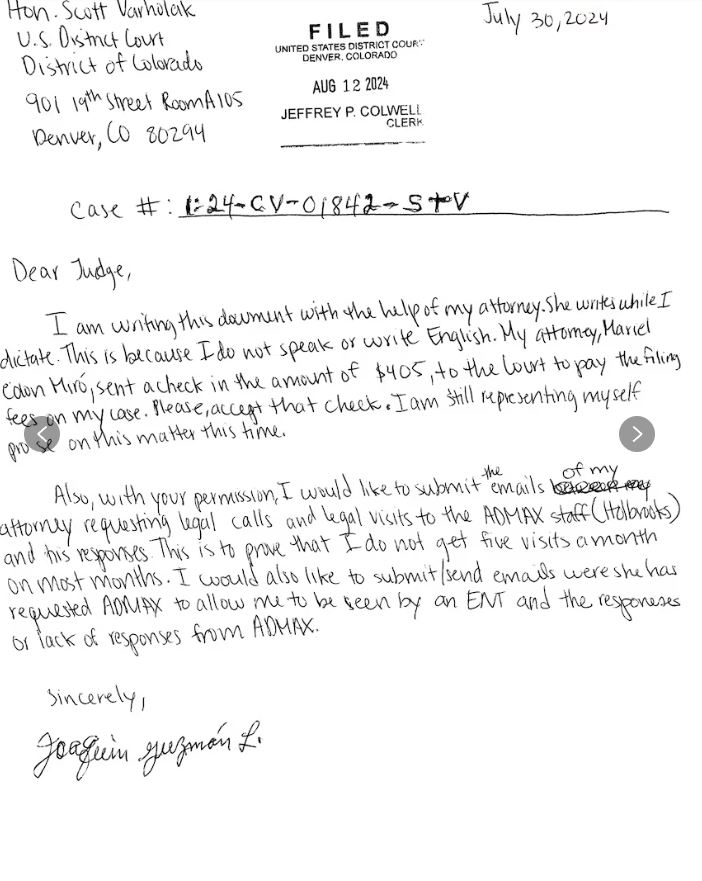 Hon. Scott Varholak
July 30, 2024
U.S. District Court
District of Colorado
901 19th Street Room A105
Denver, CO 80294
FILED
UNITED STATES DISTRICT COURT
DENVER, COLORADO
AUG 12 2024
JEFFREY P. COLWELL
CLERK
Case #: 1:24-CV-01842-STV
Dear Judge,
I am writing this document with the help of my attorney. She writes while I
dictate. This is because I do not speak or write English. My attorney, Mariel
Colon Miró, sent a check in the amount of $405, to the Court to pay the filing
fees on my case. Please, accept that check. I am still representing myself
pro se on this matter this time.
Also, with your permission, I would like to submit the emails of my
attorney requesting legal calls and legal visits to the ADMAX staff (Holbrooks)
and his responses. This is to prove that I do not get five visits a month
on most months. I would also like to submit/send emails were she has
requested ADMAX to allow me to be seen by an ENT and the responeses
or lack of responses from ADMAX.
Sincerely,
Joaquin Guzmán L.